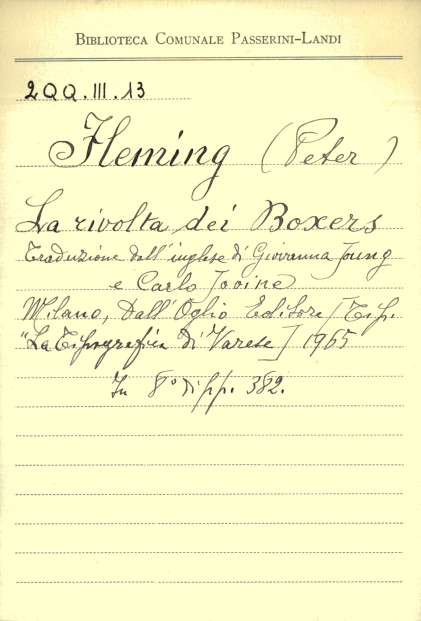 BIBLIOTECA COMUNALE PASSERINI-LANDI
2QQ.III.13
Fleming (Peter)
La rivolta dei Boxers
Traduzione dall'inglese di Giovanna Joung
e Carlo Jovine
Milano, Dall'Oglio Editore [Tip.
"La Tipografica di Varese] 1965
In 8° di pp. 382.